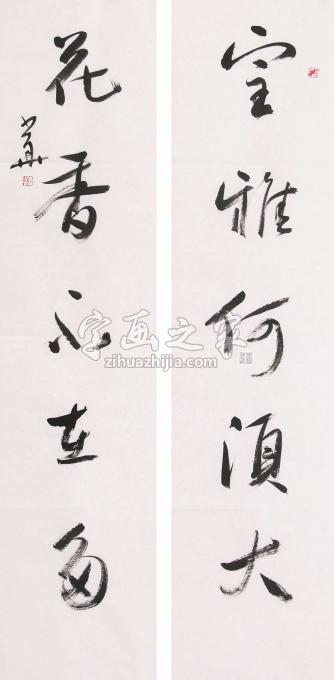 室雅何须大
花香不在多
字画之家
zihuazhijia.com